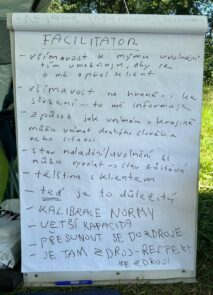 FACILITATOR
- všímavost k mýmu uvolnění
tím umožňuji, aby se
o mě opřel klient
- všímavost na hraně - i ke
stažení - to mě informuje
- způsob jak vnímám v krajině
můžu vnímat druhého člověka
nebo situaci
- stav naladění/uvolnění bl
můžu vyčíst - stav
- tělština s klientem
- teď je to důležitý
- KALIBRACE NORMY
- VĚTŠÍ KAPACITA
- PŘESUNOUT SE DO ZDROJE
- JE TAM ZDROJ - RESPEKT
KE ZDROJI